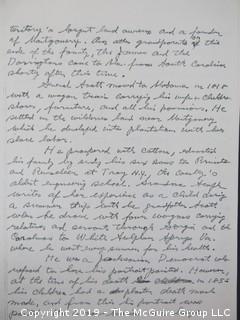 territory's largest land owners and a founder
of Montgomery. Any other grandparents on this
side of the family, the James and the
Dorringtons came to Ala. from South Carolina
shortly after this time.
Scott moved to Alabama in 1818
with a wagon train carrying his wife, children
slaves, furniture, and all his provisions. He
settled in the wilderness land near Montgomery
which he developed into plantations with his
slave labor.
He prospered with Cotton, educated
his family by sending his six sons to Princeton
and Rensselaer at Troy N.Y., the country's
oldest engineering school. Grandma
writes of her experience as a child during
a summer trip with her grandfather Scott
when she drove with four wagons carrying
relatives and servants through Georgia and the
Carolinas to White Sulphur Springs Va.
where he went every summer for his health.
He was a Jacksonian Democrat who
refused to have his portrait painted. However,
at the time of his death in 1854
his children had a plaster death mask
made, and from this his portrait was
Copyright 2019 - Auctions Through Service